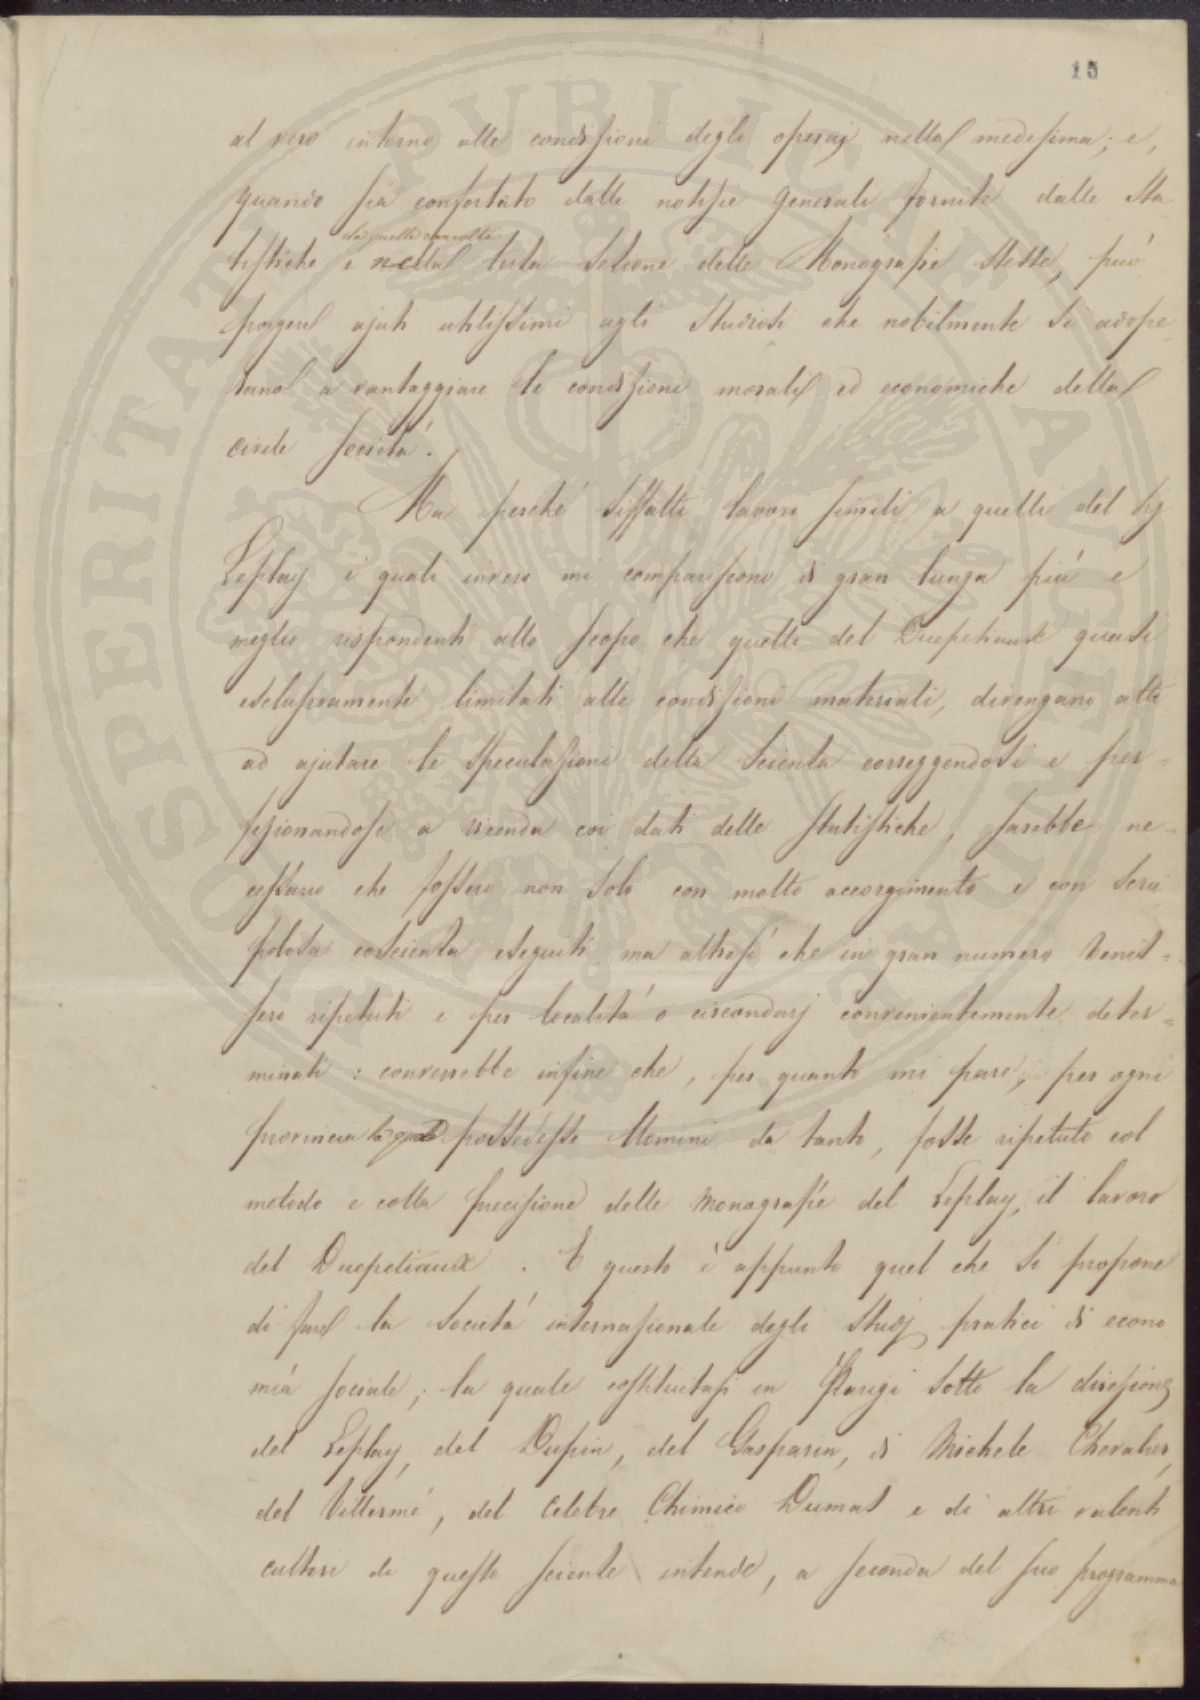 15
al vero intorno alle condizioni degli operaj nella medesima; e,
quando sia confortato dalle notizie generali fornite dalle Sta
tistiche e nella scelta delle Monografie stesse, può
porgere ajuti utilissimi agli studiosi che nobilmente si adope
rano a vantaggiare le condizioni morali ed economiche della
civile società.
Ma perché siffatti lavori simili a quelli del Sig
Leplay i quali invero mi compariscono di gran lunga più e
meglio rispondenti allo scopo che quelli del Ducpetiaux quasi
esclusivamente limitati alle condizioni materiali, divengano atti
ad ajutare le speculazioni della Scienza correggendosi e per=
fezionandosi a vicenda coi dati delle statistiche, sarebbe ne=
cessario che fossero non solo con molto accorgimento e con scru
polosa coscienza eseguiti ma altresì che in gran numero venis=
sero ripetuti e per località o circondarj convenientemente deter=
minati: converrebbe infine che, per quanto mi pare, per ogni
provincia la quale possedesse Uomini da tanto, fosse ripetuto col
metodo e colla precisione delle Monografie del Leplay, il lavoro
del Ducpetiaux. E questo è appunto quel che si propone
di fare la Società internazionale degli Studj pratici di econo
mia sociale; la quale costituitasi in Parigi sotto la direzione
del Leplay, del Dupin, del Gasparin, di Michele Chevalier,
del Villermé, del celebre Chimico Dumas e di altri valenti
cultori di queste scienze intende, a seconda del suo programma
SPERITAT PVBLICAE AVGENDAE